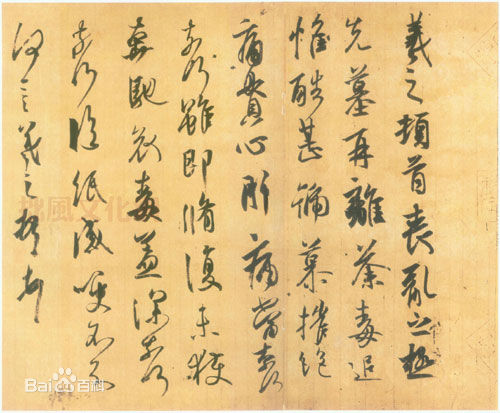 羲之頓首喪亂之極
先墓再離荼毒追
惟酷甚號慕摧絕
痛貫心肝痛當奈何
奈何雖即脩復未獲
奔馳哀毒益深奈何
奈何臨紙感哽不知
何言羲之頓首
拙風文化网
Bai百科